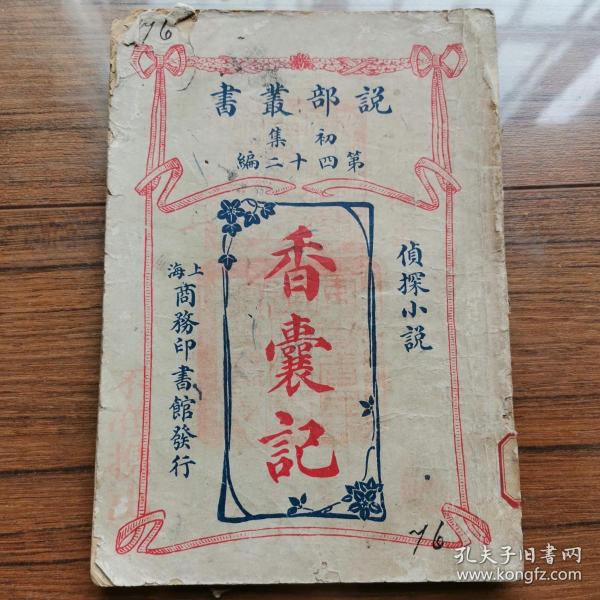 76
説部叢書
初集
第四十二編
偵探小説
香囊記
上海
商務印書館發行
76
孔夫子旧书网
www.kongfz.com